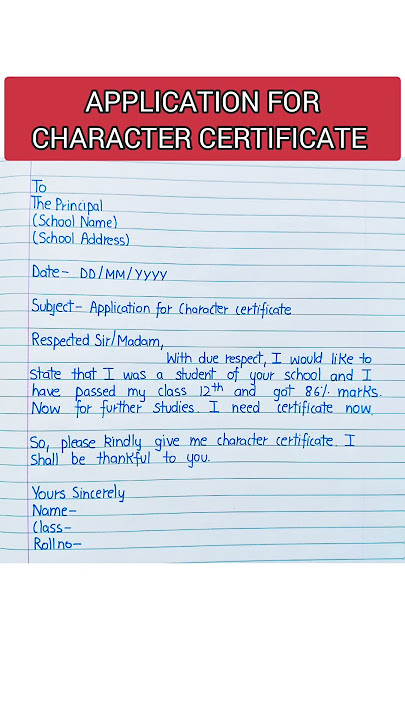 APPLICATION FOR
CHARACTER CERTIFICATE
To
The Principal
(School Name)
(School Address)
Date- DD/MM/YYYY
Subject- Application for Character certificate
Respected Sir/Madam,
With due respect, I would like to
state that I was a student of your school and I
have passed my class 12th and got 86% marks.
Now for further studies. I need certificate now.
So, please kindly give me character certificate. I
Shall be thankful to you.
Yours Sincerely
Name-
Class-
Roll no-